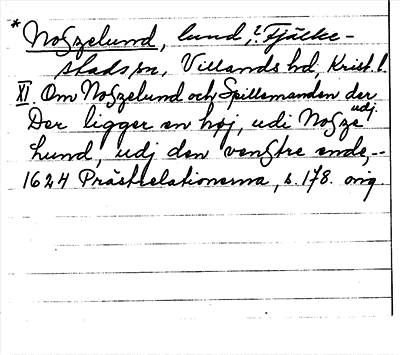 * Noßzelund, lund, i Fjälke-
stads sn, Villands hd, Krist. l.
XI. Om Noßzelund och Spillemanden der udj.
Der ligger en høj, udi Noßze
Lund, udj den venßtre ende,--
1624 Prästrelationerna, s. 178. orig.